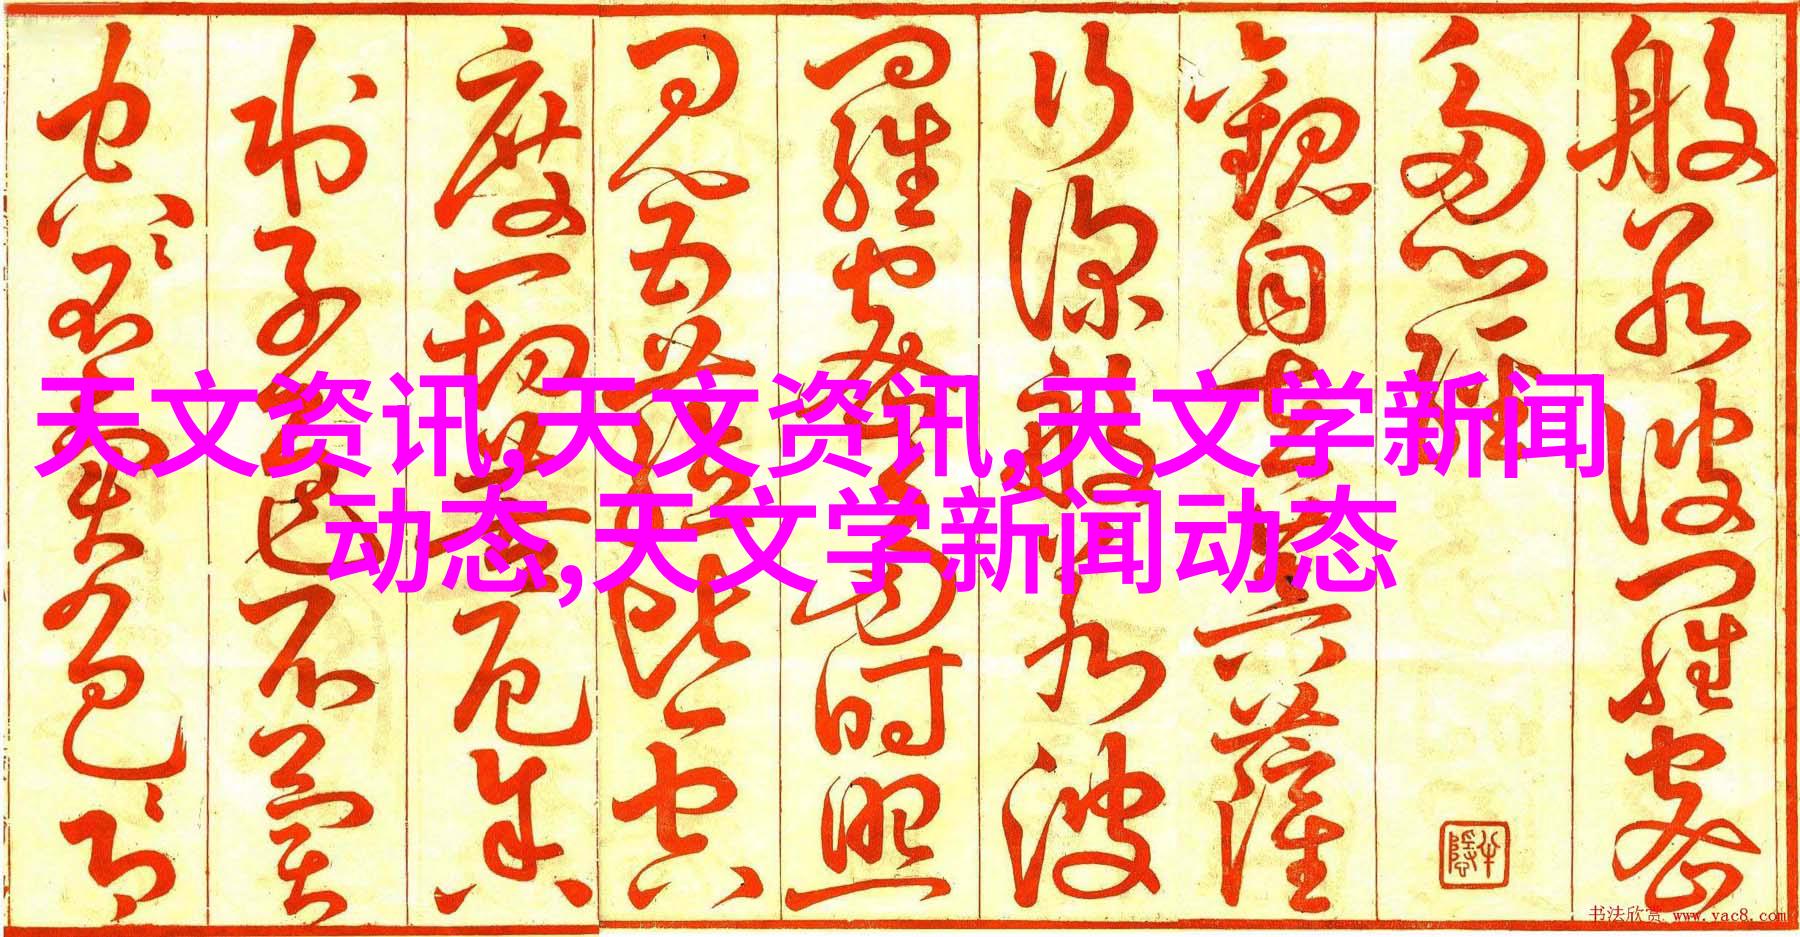 天文资讯,天文资讯,天文学新闻
动态,天文学新闻动态
般若波羅蜜
多心經
觀自在菩薩
行深般若波
羅蜜多時照
見五蘊皆空
度一切苦厄舍
利子色不異
空〻不異色〻即
书法欣赏 www.yac8.com